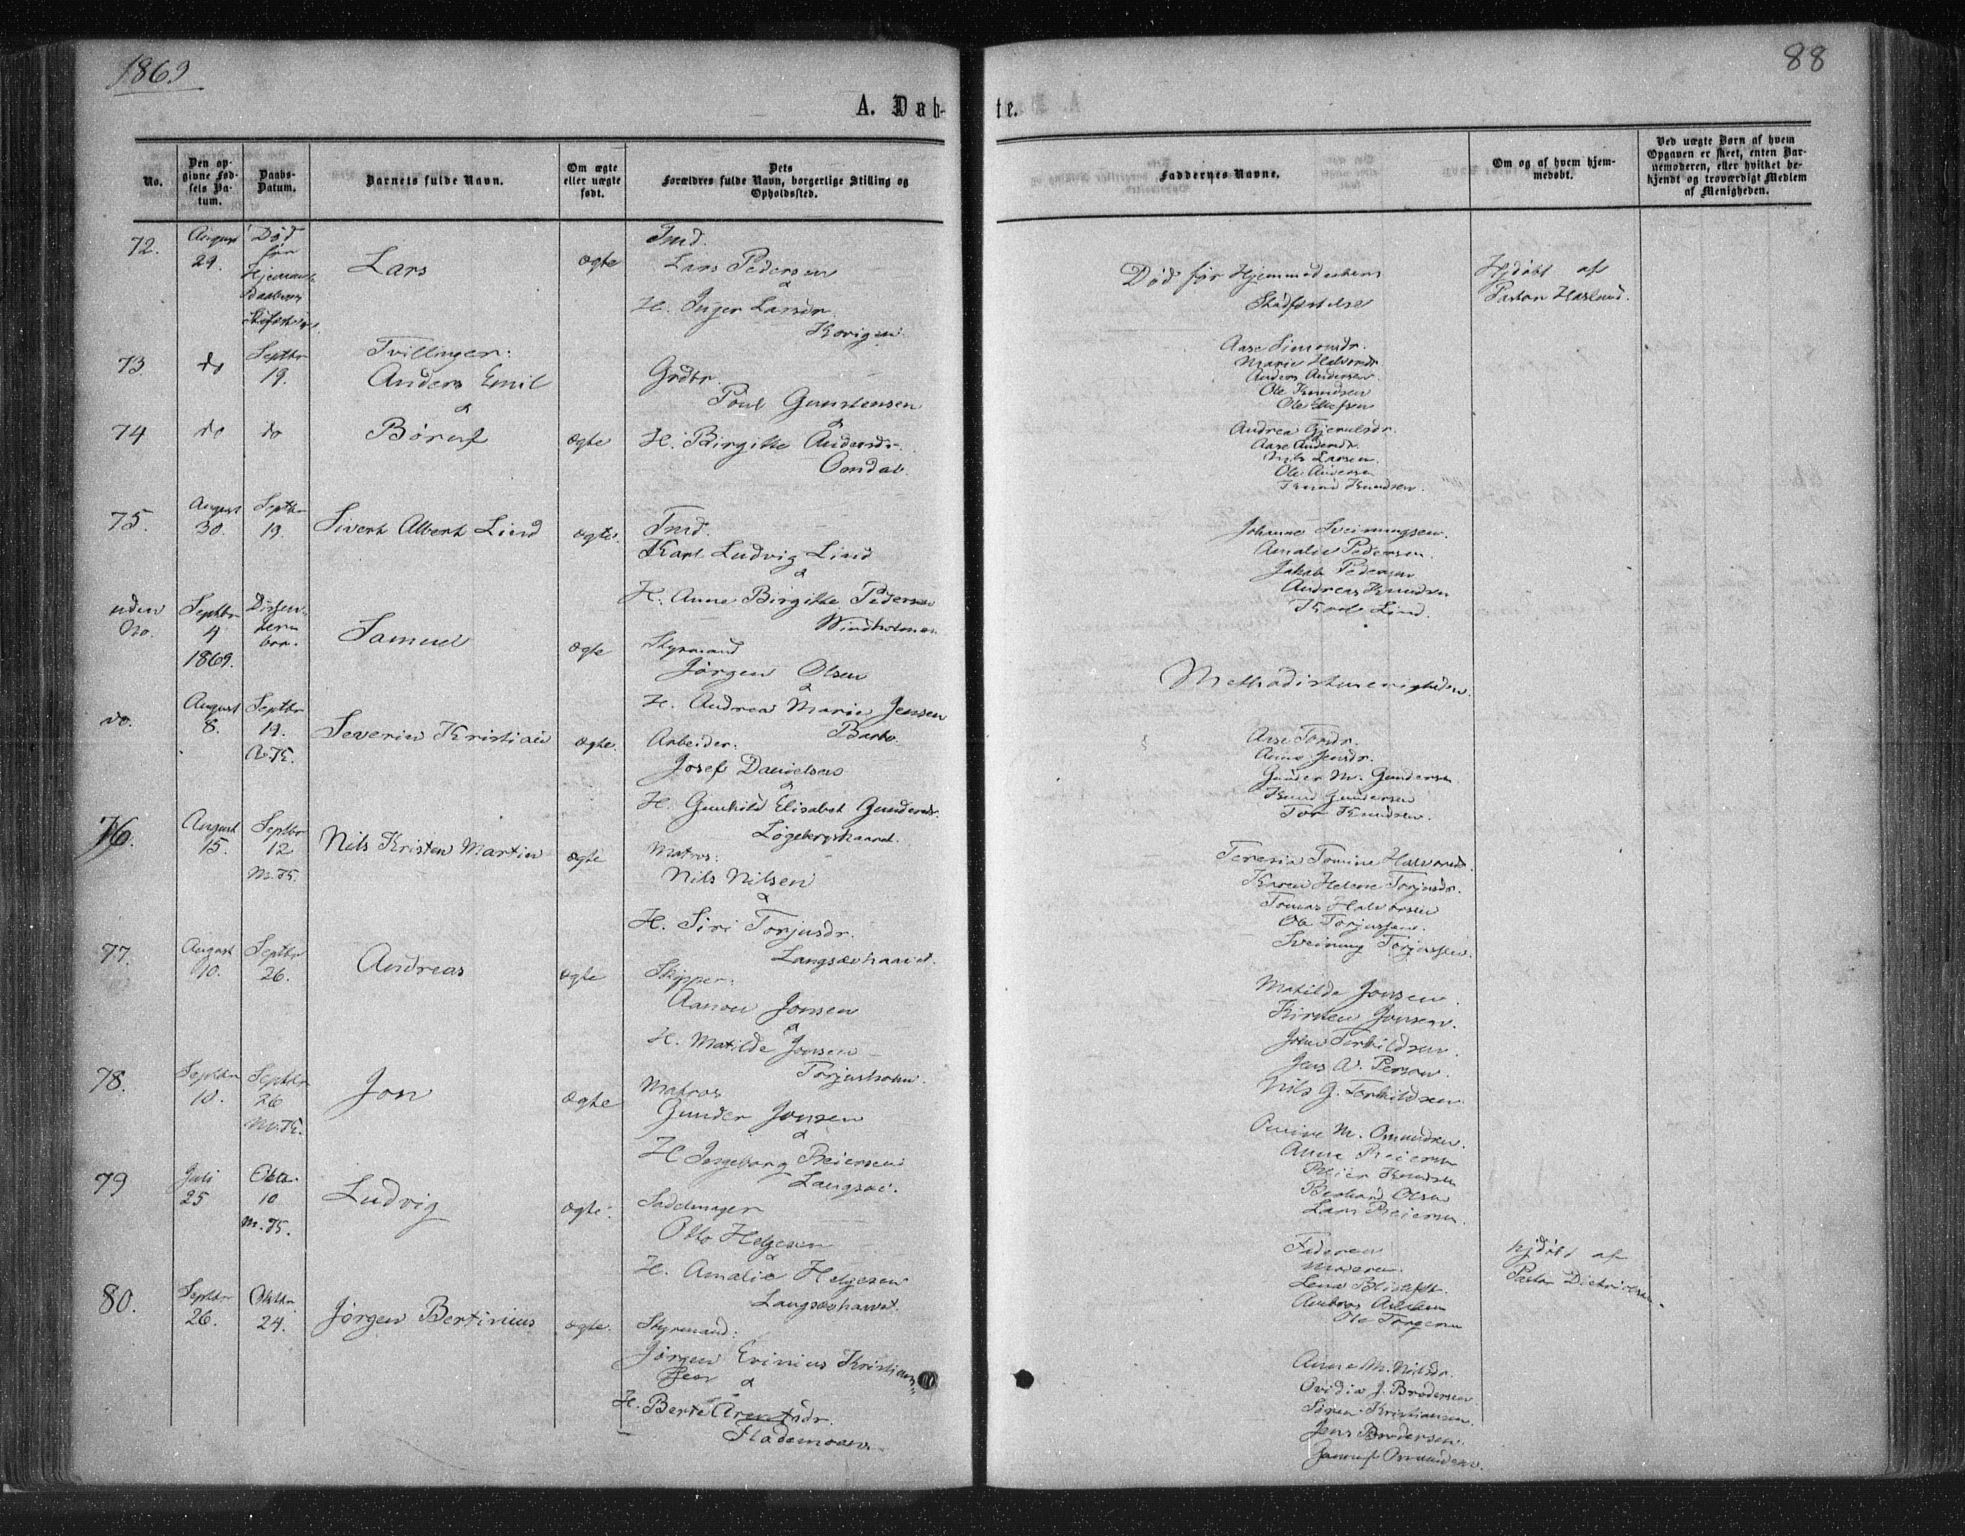 1869
88
A. Døb-
te.
No.
Den op-
givne Fød-
sels Da-
tum.
Daabs-
Datum.
Barnets fulde Navn.
Om ægte
eller uægte
født.
Dets
Forældres fulde Navn, borgerlige Stilling og
Opholdssted.
Faddernes Navne.
Om og af hvem hjem-
medøbt.
Ved uægte Børn af hvem
Opgaven er skeet, enten Bar-
nemoderen, eller hvilket be-
kjendt og troværdigt Medlem
af Menigheden.
72.
August
29.
Død
før
Lars
ægte
Lars Pedersen
&
H. Inger Larsdr.
Død før Hjemmedaabens
Stadfæstelse
Hjdøbt af
Pastor Haslund.
73
do
Septbr
19.
Tvillinger:
Anders Emil
&
Grdbr.
Poul Gunstensen
&
Aase Simonsdr.
Marie Halvorsdr
Anders Andersen
Ole Knudsen
74
do
do
ægte
H. Birgitte Andersdr.
Omdal.
Andrea
Aase Andersdr.
Nils Larsen
Ole Andersen
Knud Knudsen.
75.
August
30.
Septbr
19.
Sivert Albert Lind
ægte.
Karl Ludvig Lind
&
H. Anne Birgitte Pedersen
Windholmen
Johanne Sveinungsen.
Amalie Pedersen.
Jakob Pedersen
Andreas Knudsen
Lind.
uden
No.
Septbr
4
1869.
Samuel
ægte
Styrmand
Jørgen Olsen
&
H. Andrea Marie Jensen
Barbo.
Methodistmenigheden.
do.
August
8.
Septbr
19.
Severin Kristian
ægte.
Arbeider.
Josef Danielsen
&
H. Gunhild Elisabet Gundersdr.
Aase Torsdr.
Anne Jensdr.
Gunder M. Gundersen
Knud Gundersen
Tor Knudsen.
76.
August
15.
Septbr
12
M.K.
Nils Kristen Martin
ægte
Matros:
Nils Nilsen
&
H. Siri Torjusdr.
Langsæhaavet.
Teresia Tomine Halvorsdr
Karen Helene Torjusdr.
Tomas Halvorsen
Ole Torjussen.
Sveinung Torjussen.
77.
August
10.
Septbr
26.
Andreas
ægte
Skipper.
Aanon Jonsen
&
H. Matilde Jonsen
Torjusholm.
Matilde Jonsen.
Kirsten Jonsen.
John Terkildsen.
Jens A. Person.
Nils G. Terkildsen.
78.
Septbr
10.
Septbr
26
Jon
ægte
Matros
Gunder Jonsen
&
H Ingeborg Reiersen
Langsæ.
M. Omundsen.
Anne Reiersen
Reier Knudsen
Olsen
Lars Reiersen.
79
Juli
25
Oktbr.
10.
M.K.
Ludvig
ægte.
Sadelmager
Otto Helgesen
&
H. Amalie Helgesen
Langsæhaavet.
Faderen
Moderen
Hjdøbt af
Pastor Dietrichson.
80.
Septbr
26.
Oktbr.
24.
Jørgen Bertinius
ægte.
Styrmand:
Jørgen Evinius Kristian-
sen
&
H. Berte Arentsdr.
Flademoen.
Anne M. Nilsdr.
Ovidia J. Brodersen
Søren Kristiansen.
Jens Brodersen.
Omundsen.